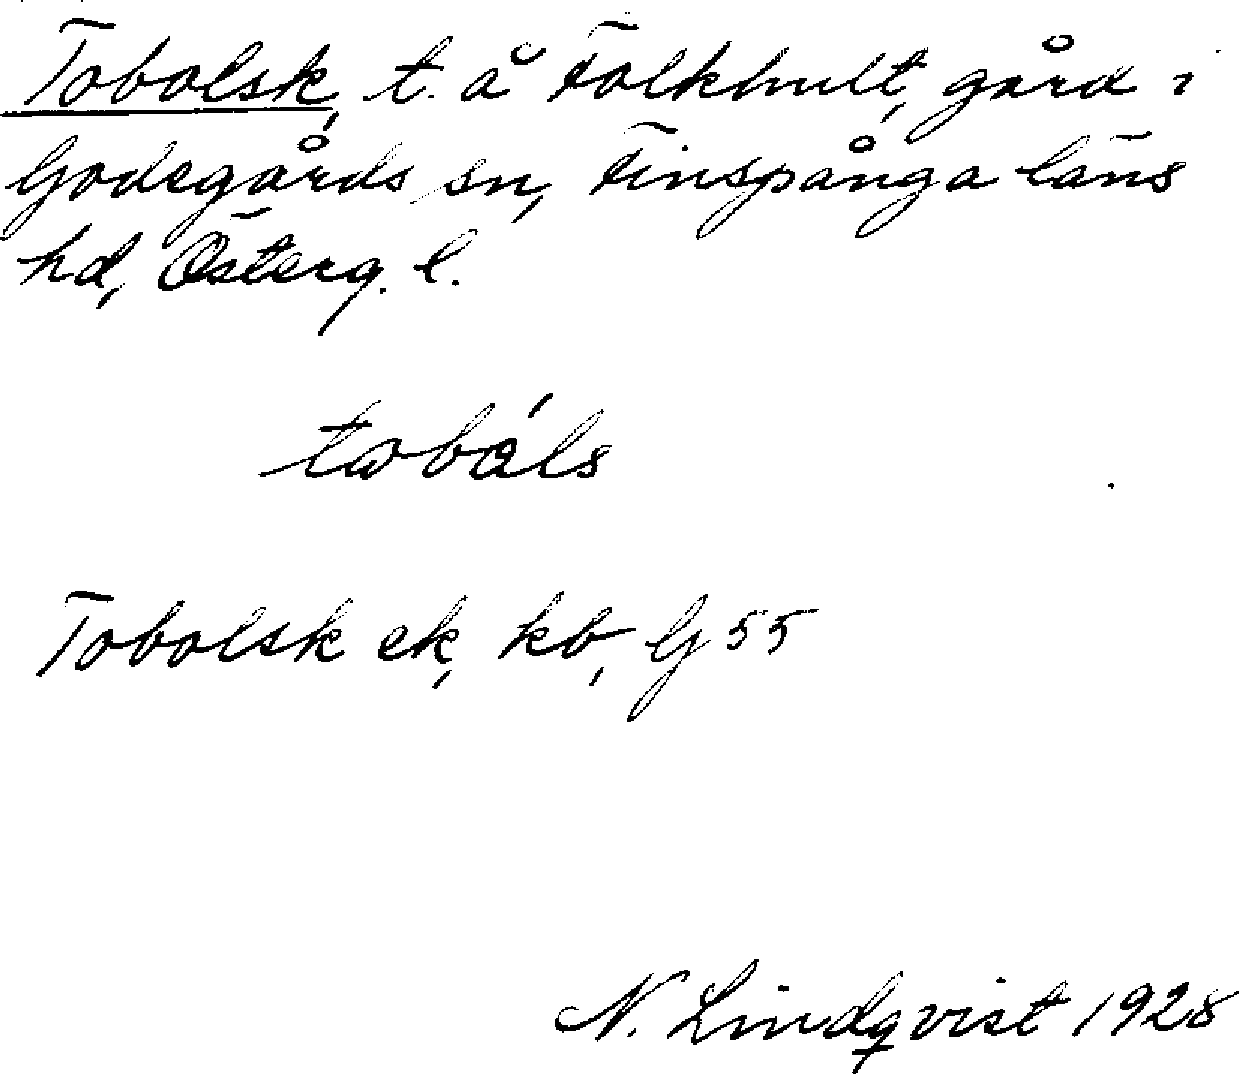 Tobolsk, t. å Folkhult, gård i
Godegårds sn, Finspånga läns
hd, Österg. l.
tωbáls
Tobolsk ek, kb, G 55
N. Lindqvist 1928